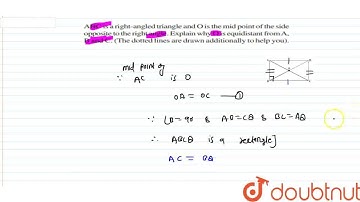 ABC is a right-angled triangle and O is the mid point of the side
opposite to the right angle. Explain why O is equidistant from A,
B and C. (The dotted lines are drawn additionally to help you).
mid point of
∵ AC is O
OA = OC — ①
∵ ∠B = 90 & AB = CD & BC = AD
∴ ABCD is a rectangle]
AC = BD
doubtnut